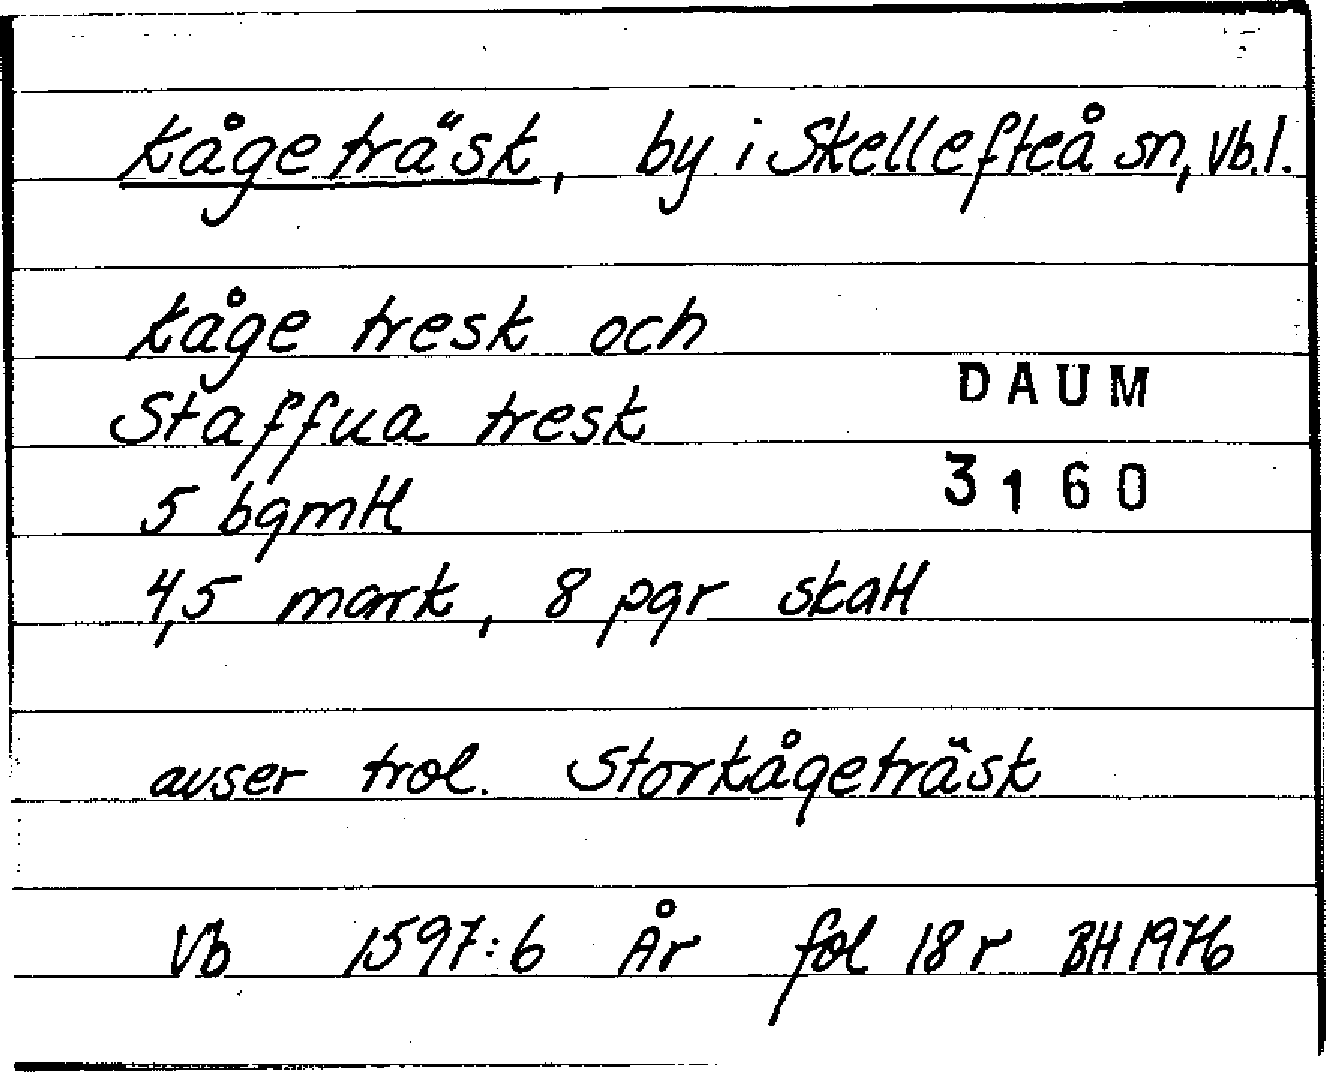 Kågeträsk, by i Skellefteå sn, Vb.l.
Kåge tresk och
Staffua tresk
DAUM
5 bgmtl
3160
4,5 mark, 8 pgr skatt
avser trol. Storkågeträsk
Vb 1597:6 År fol 18 r BH 1976